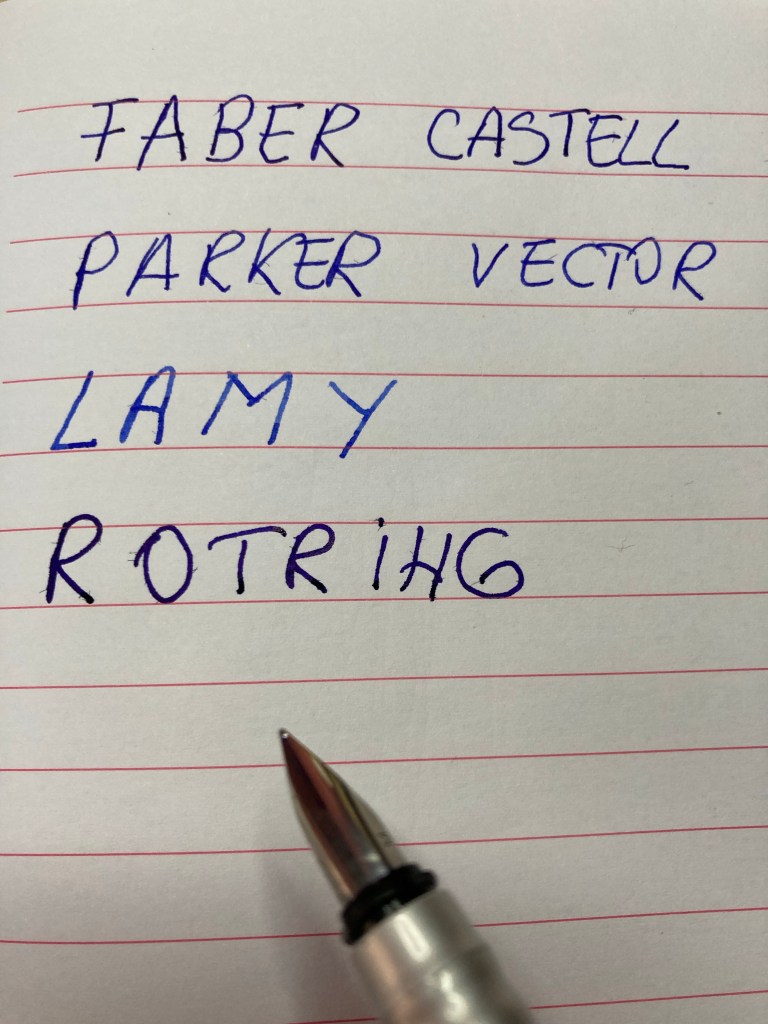 FABER CASTELL
PARKER VECTOR
LAMY
ROTRiNG